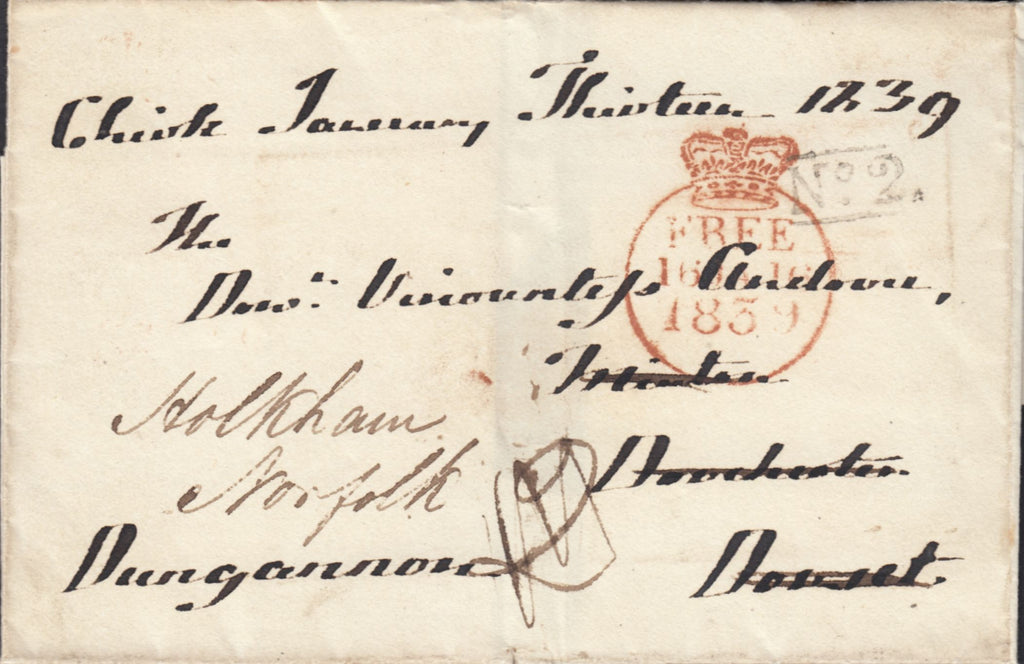 Chirk January Thirteen 1839
No. 2.
The
FREE
Dowr. Viscountess Andover,
16 JA 16
1839
Holkham
Dorchester
Norfolk
Dungannon
Dorset.